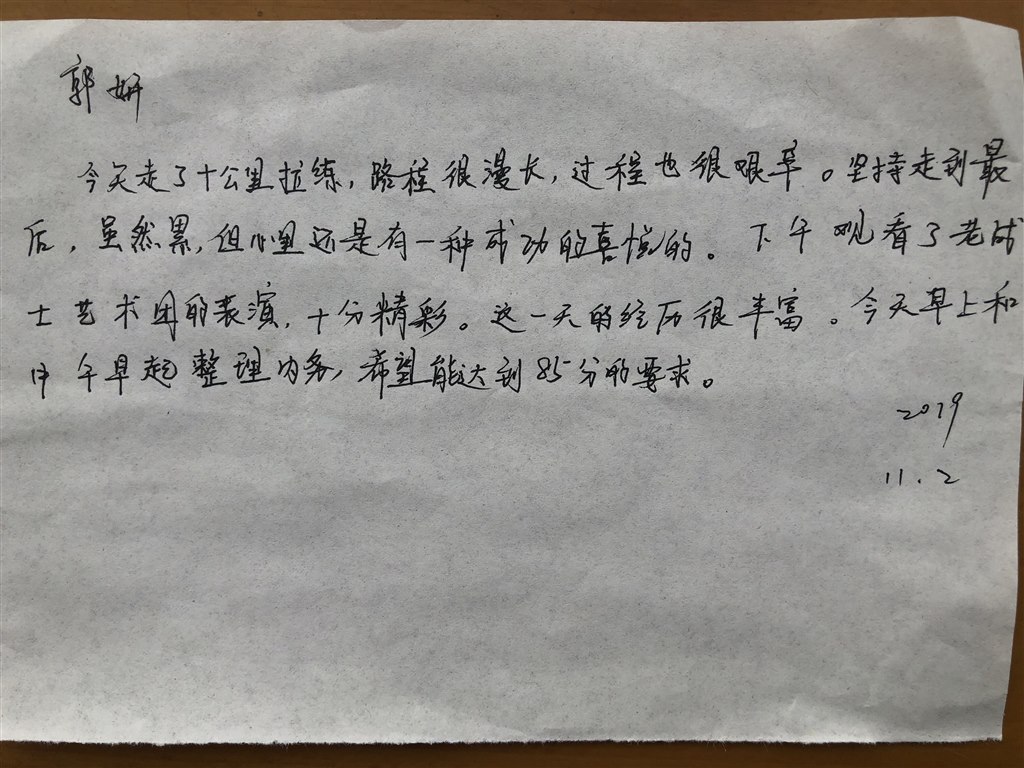 郭妍
今天走了十公里拉练,路程很漫长,过程也很艰辛。坚持走到最
后,虽然累,但心里还是有一种成功的喜悦的。下午观看了老战
士艺术团的表演,十分精彩。这一天的经历很丰富。今天早上和
中午早起整理内务,希望能达到85分的要求。
2019
11.2